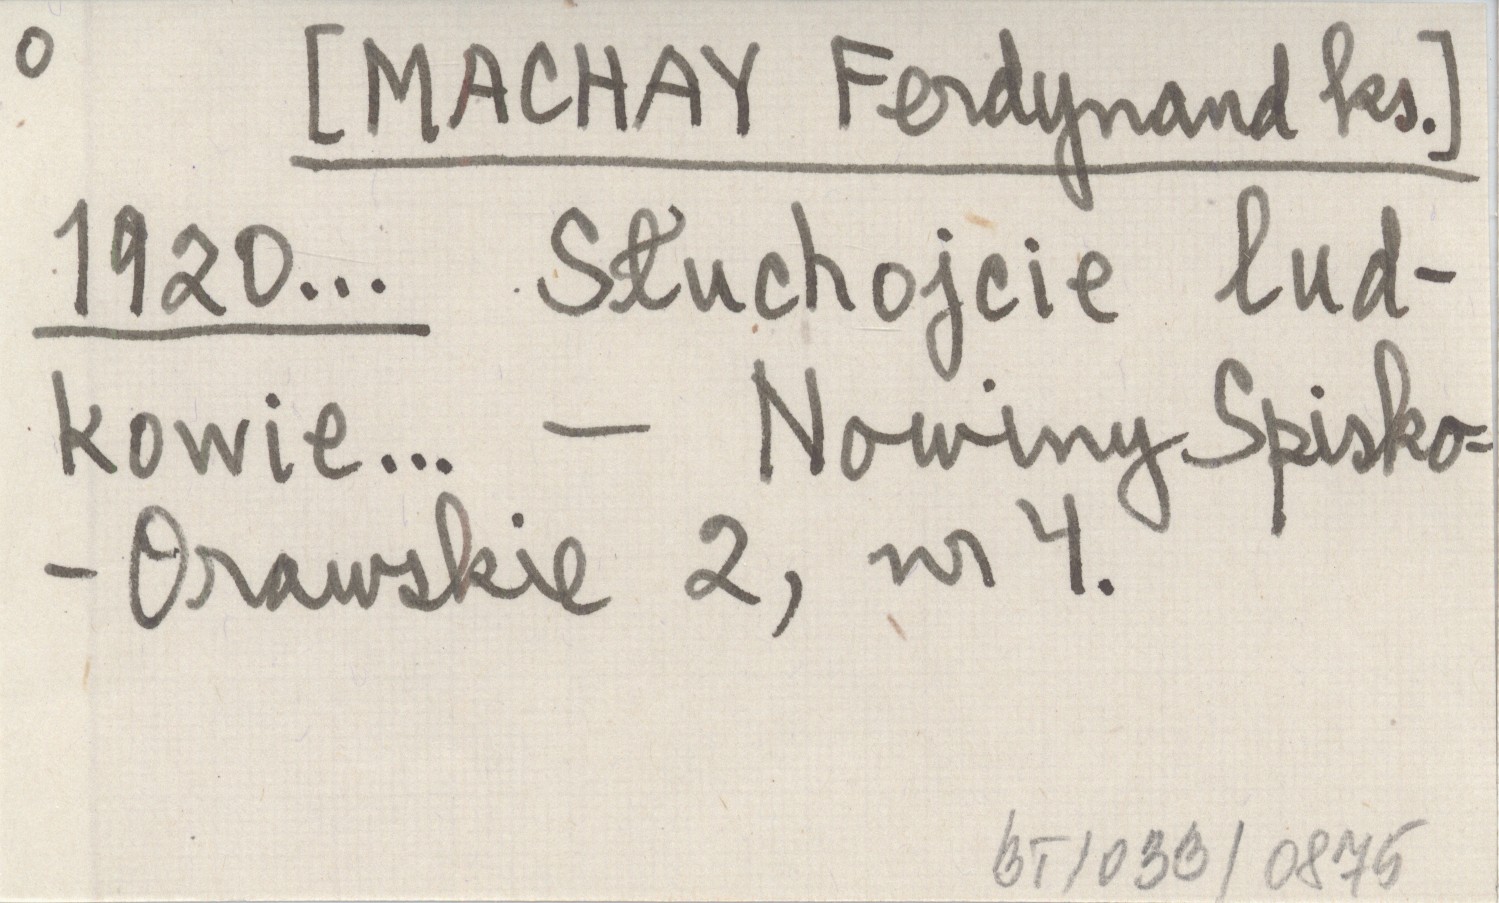 O [MACHAY Ferdynand ks.]
1920... Słuchojcie lud-
kowie... — Nowiny Spisko-
-Orawskie 2, nr 4.
BT/033/0875